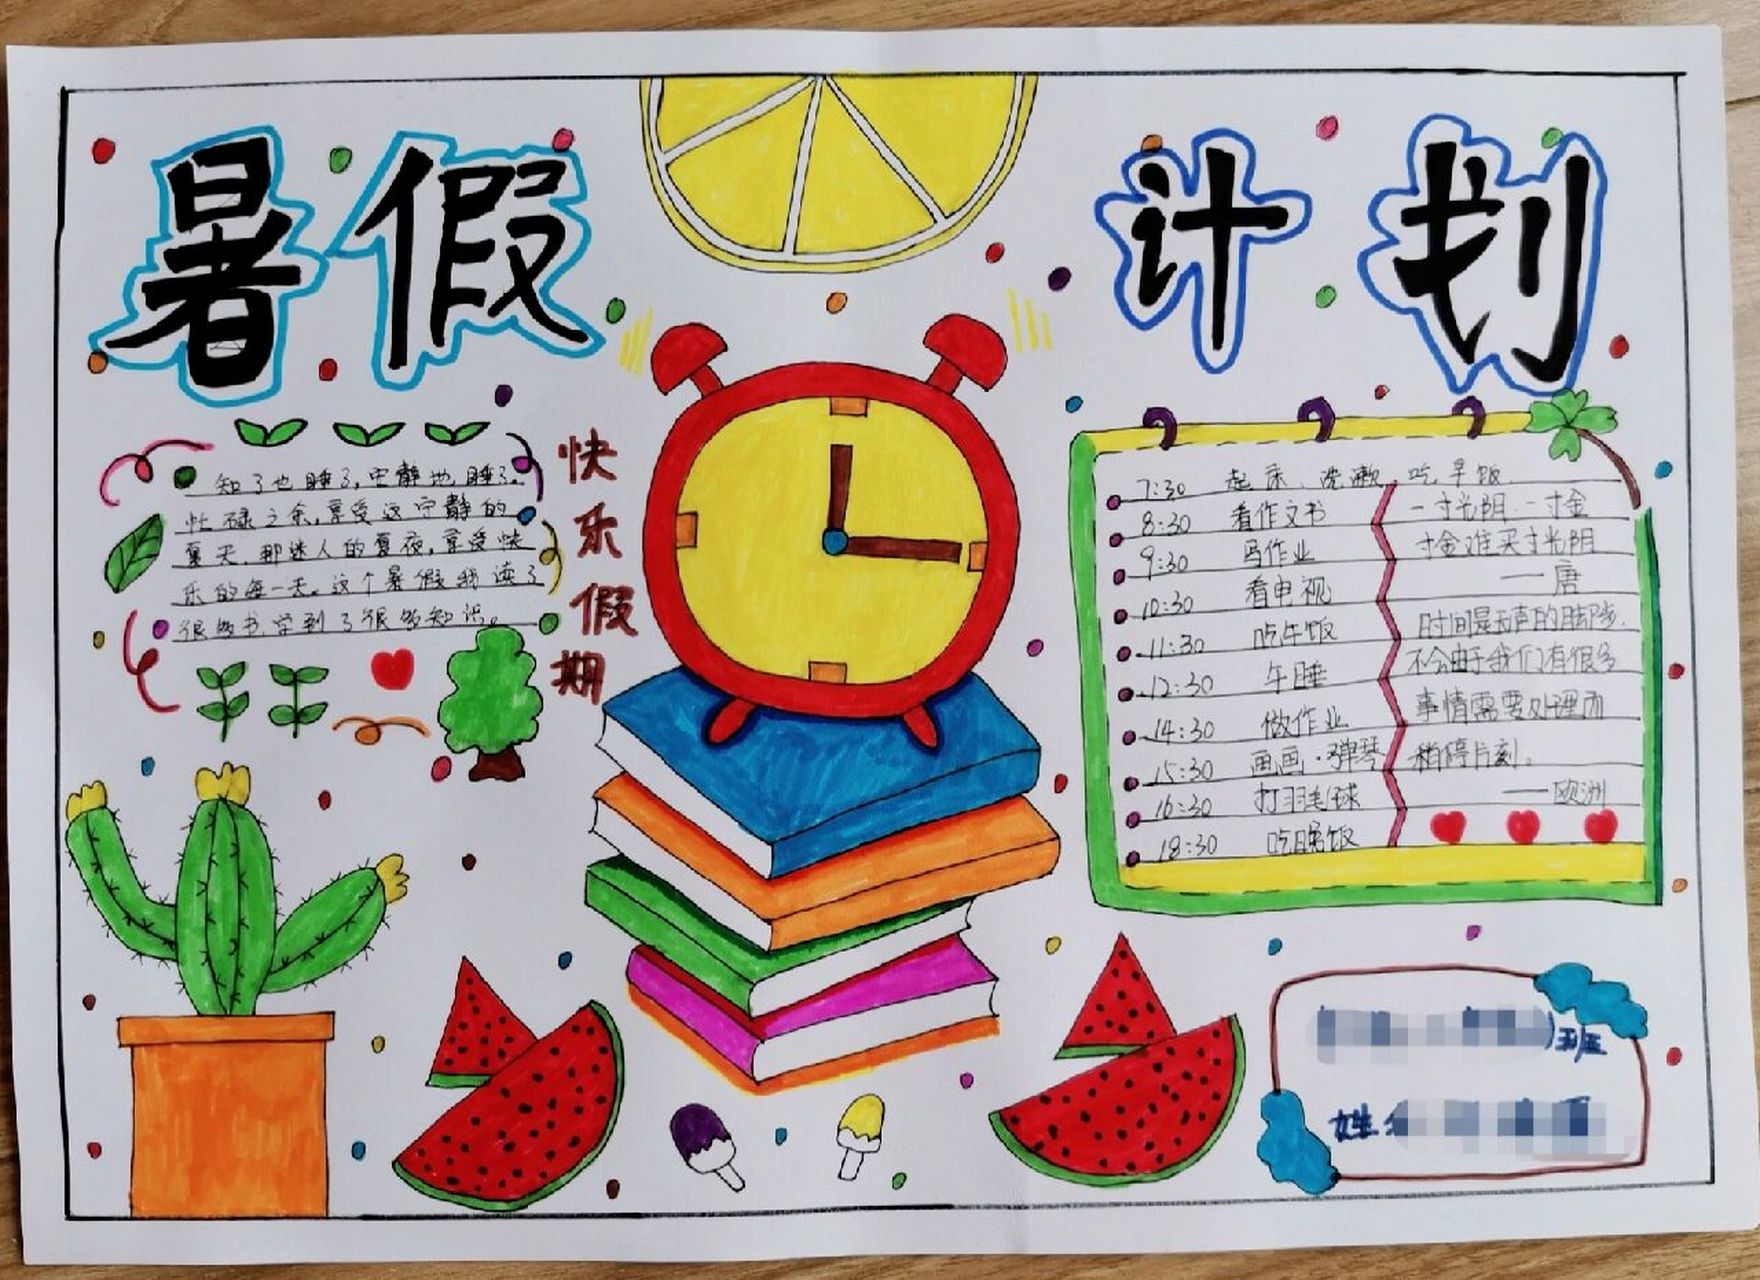 暑假计划
知了也睡了,安静地睡了。
忙碌之余,享受这宁静的
夏天,那迷人的夏夜,享受快
乐的每一天。这个暑假我读了
很多书学到了很多知识。
快乐假期
7:30 起床、洗漱、吃早饭
8:30 看作文书
9:30 写作业
10:30 看电视
11:30 吃午饭
12:30 午睡
14:30 做作业
15:30 画画·弹琴
16:30 打羽毛球
18:30 吃晚饭
一寸光阴一寸金
寸金难买寸光阴
——唐
时间是无声的脚步,
不会由于我们有很多
事情需要处理而
稍停片刻。
——欧洲
)班
姓